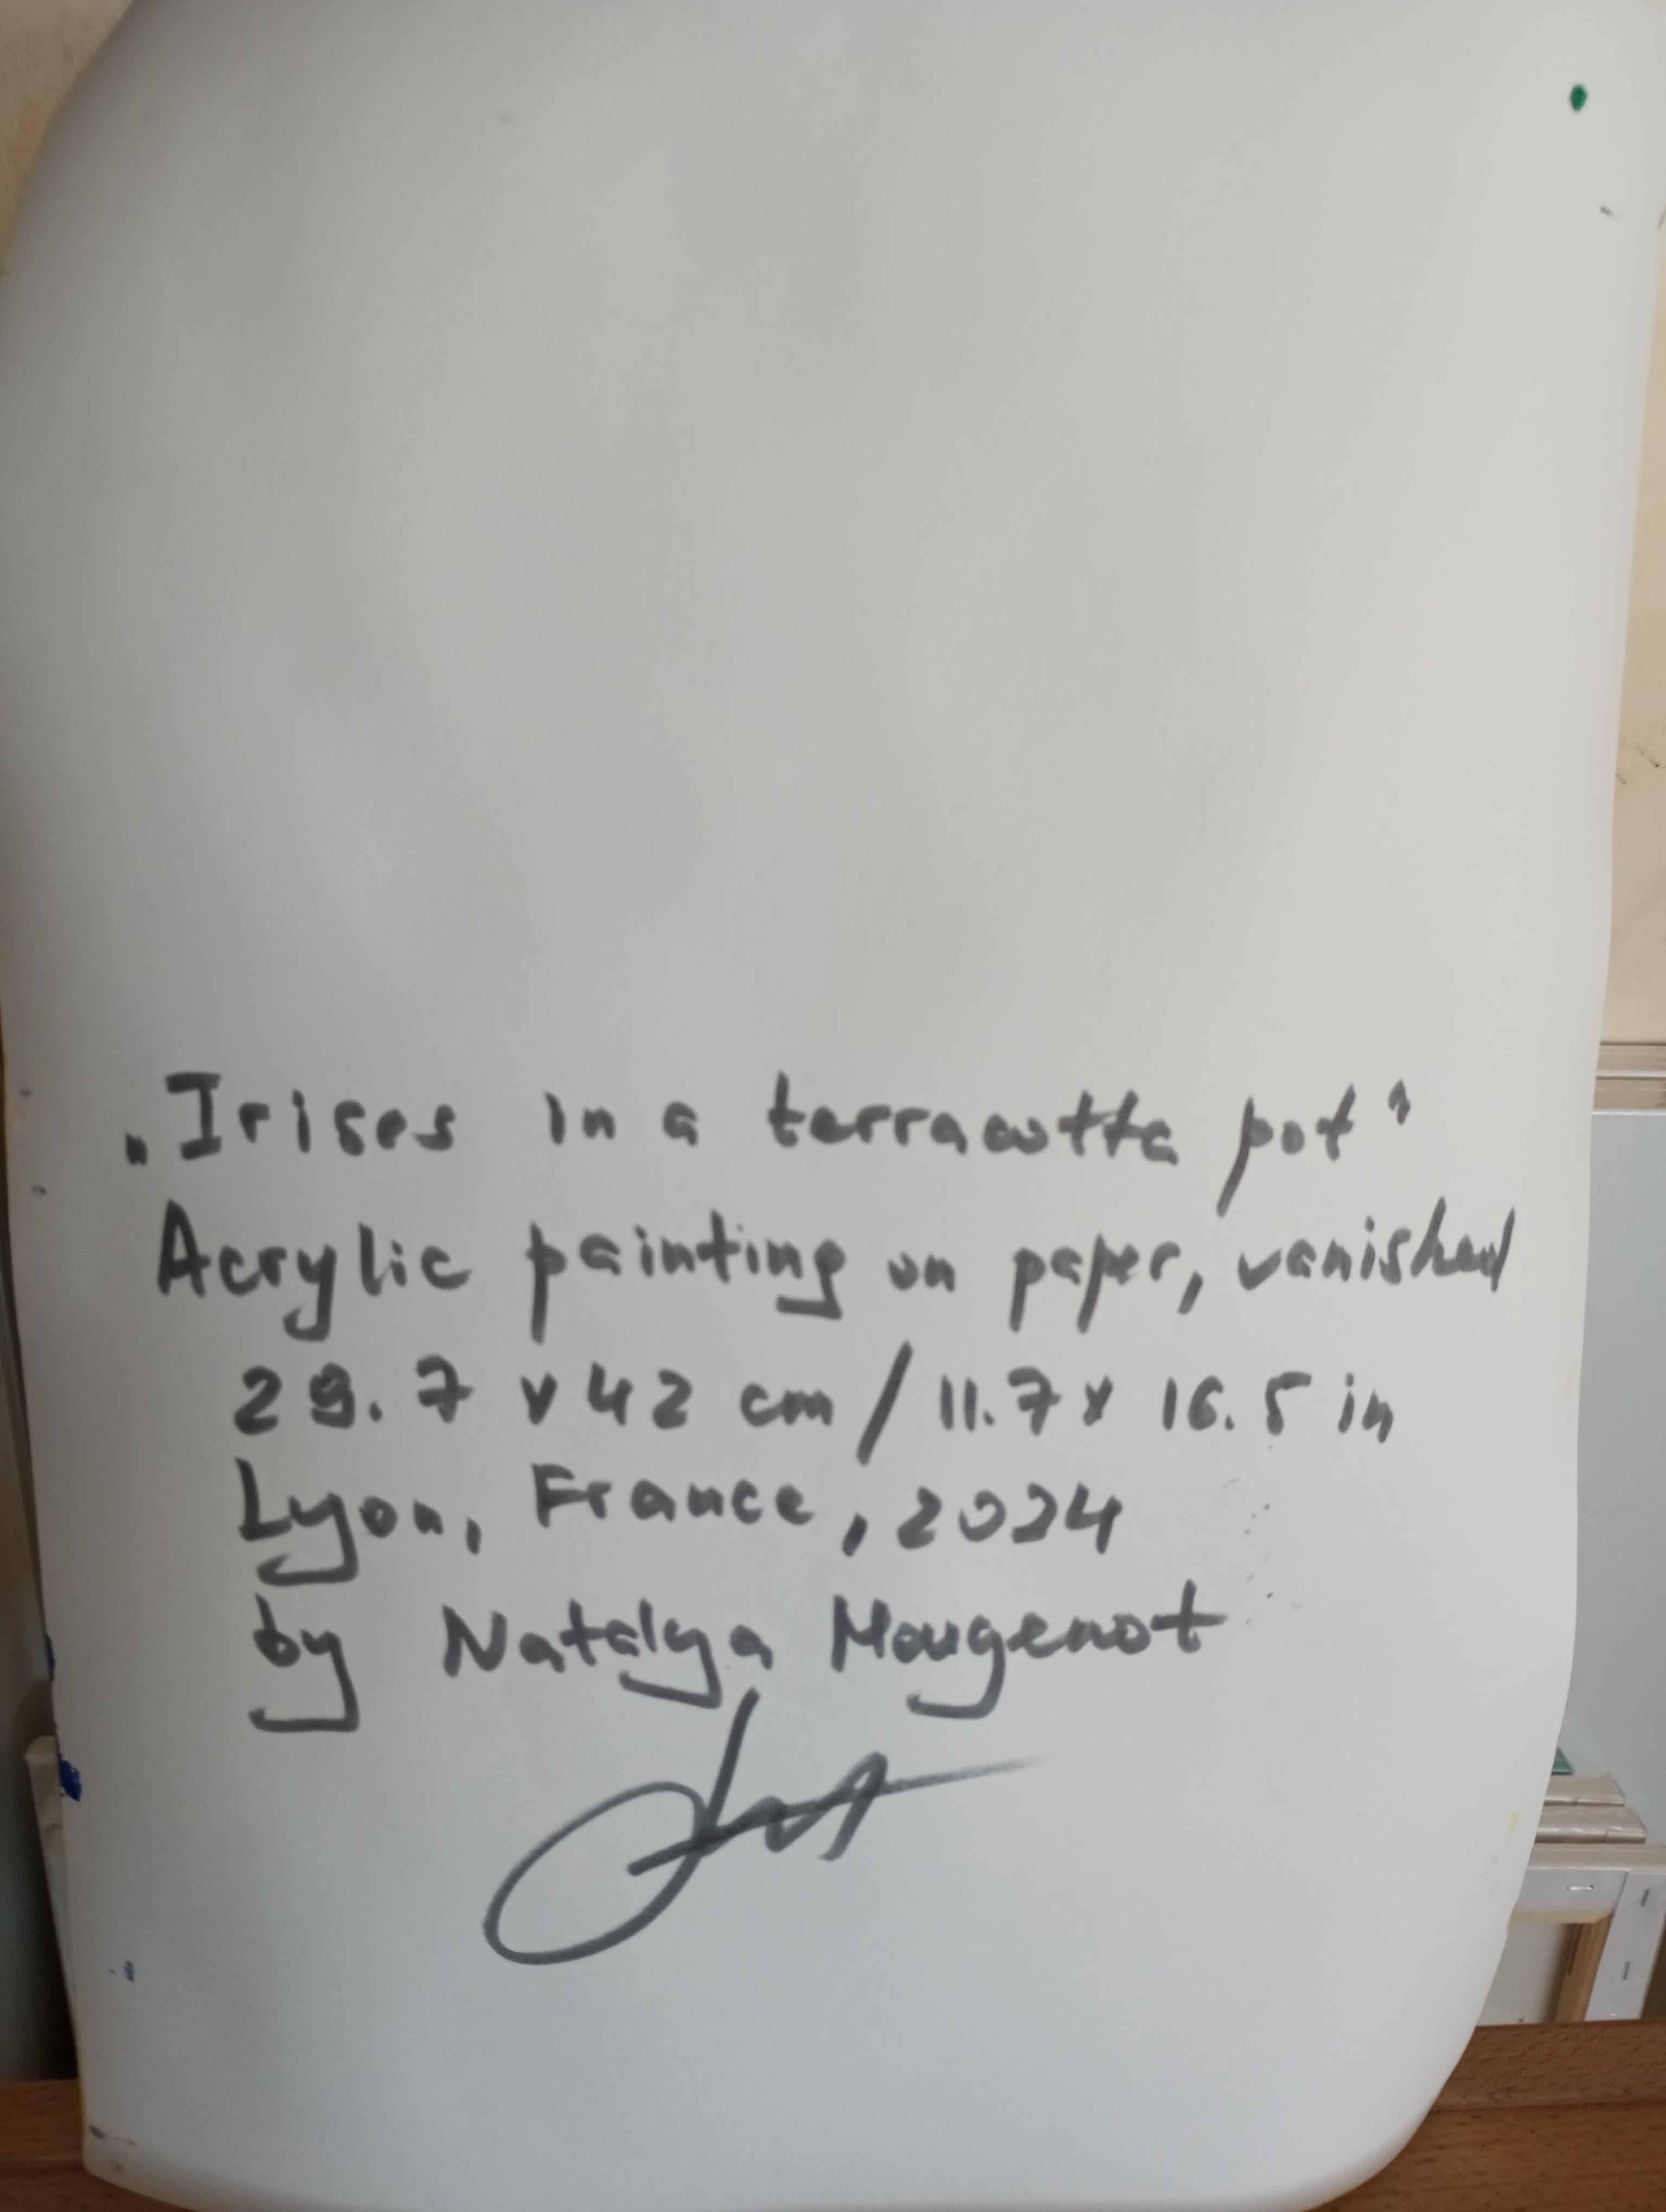 „Irises in a terracotta pot"
Acrylic painting on paper, vanished
29.7 x 42 cm / 11.7 x 16.5 in
Lyon, France, 2024
by Natalya Mougenot